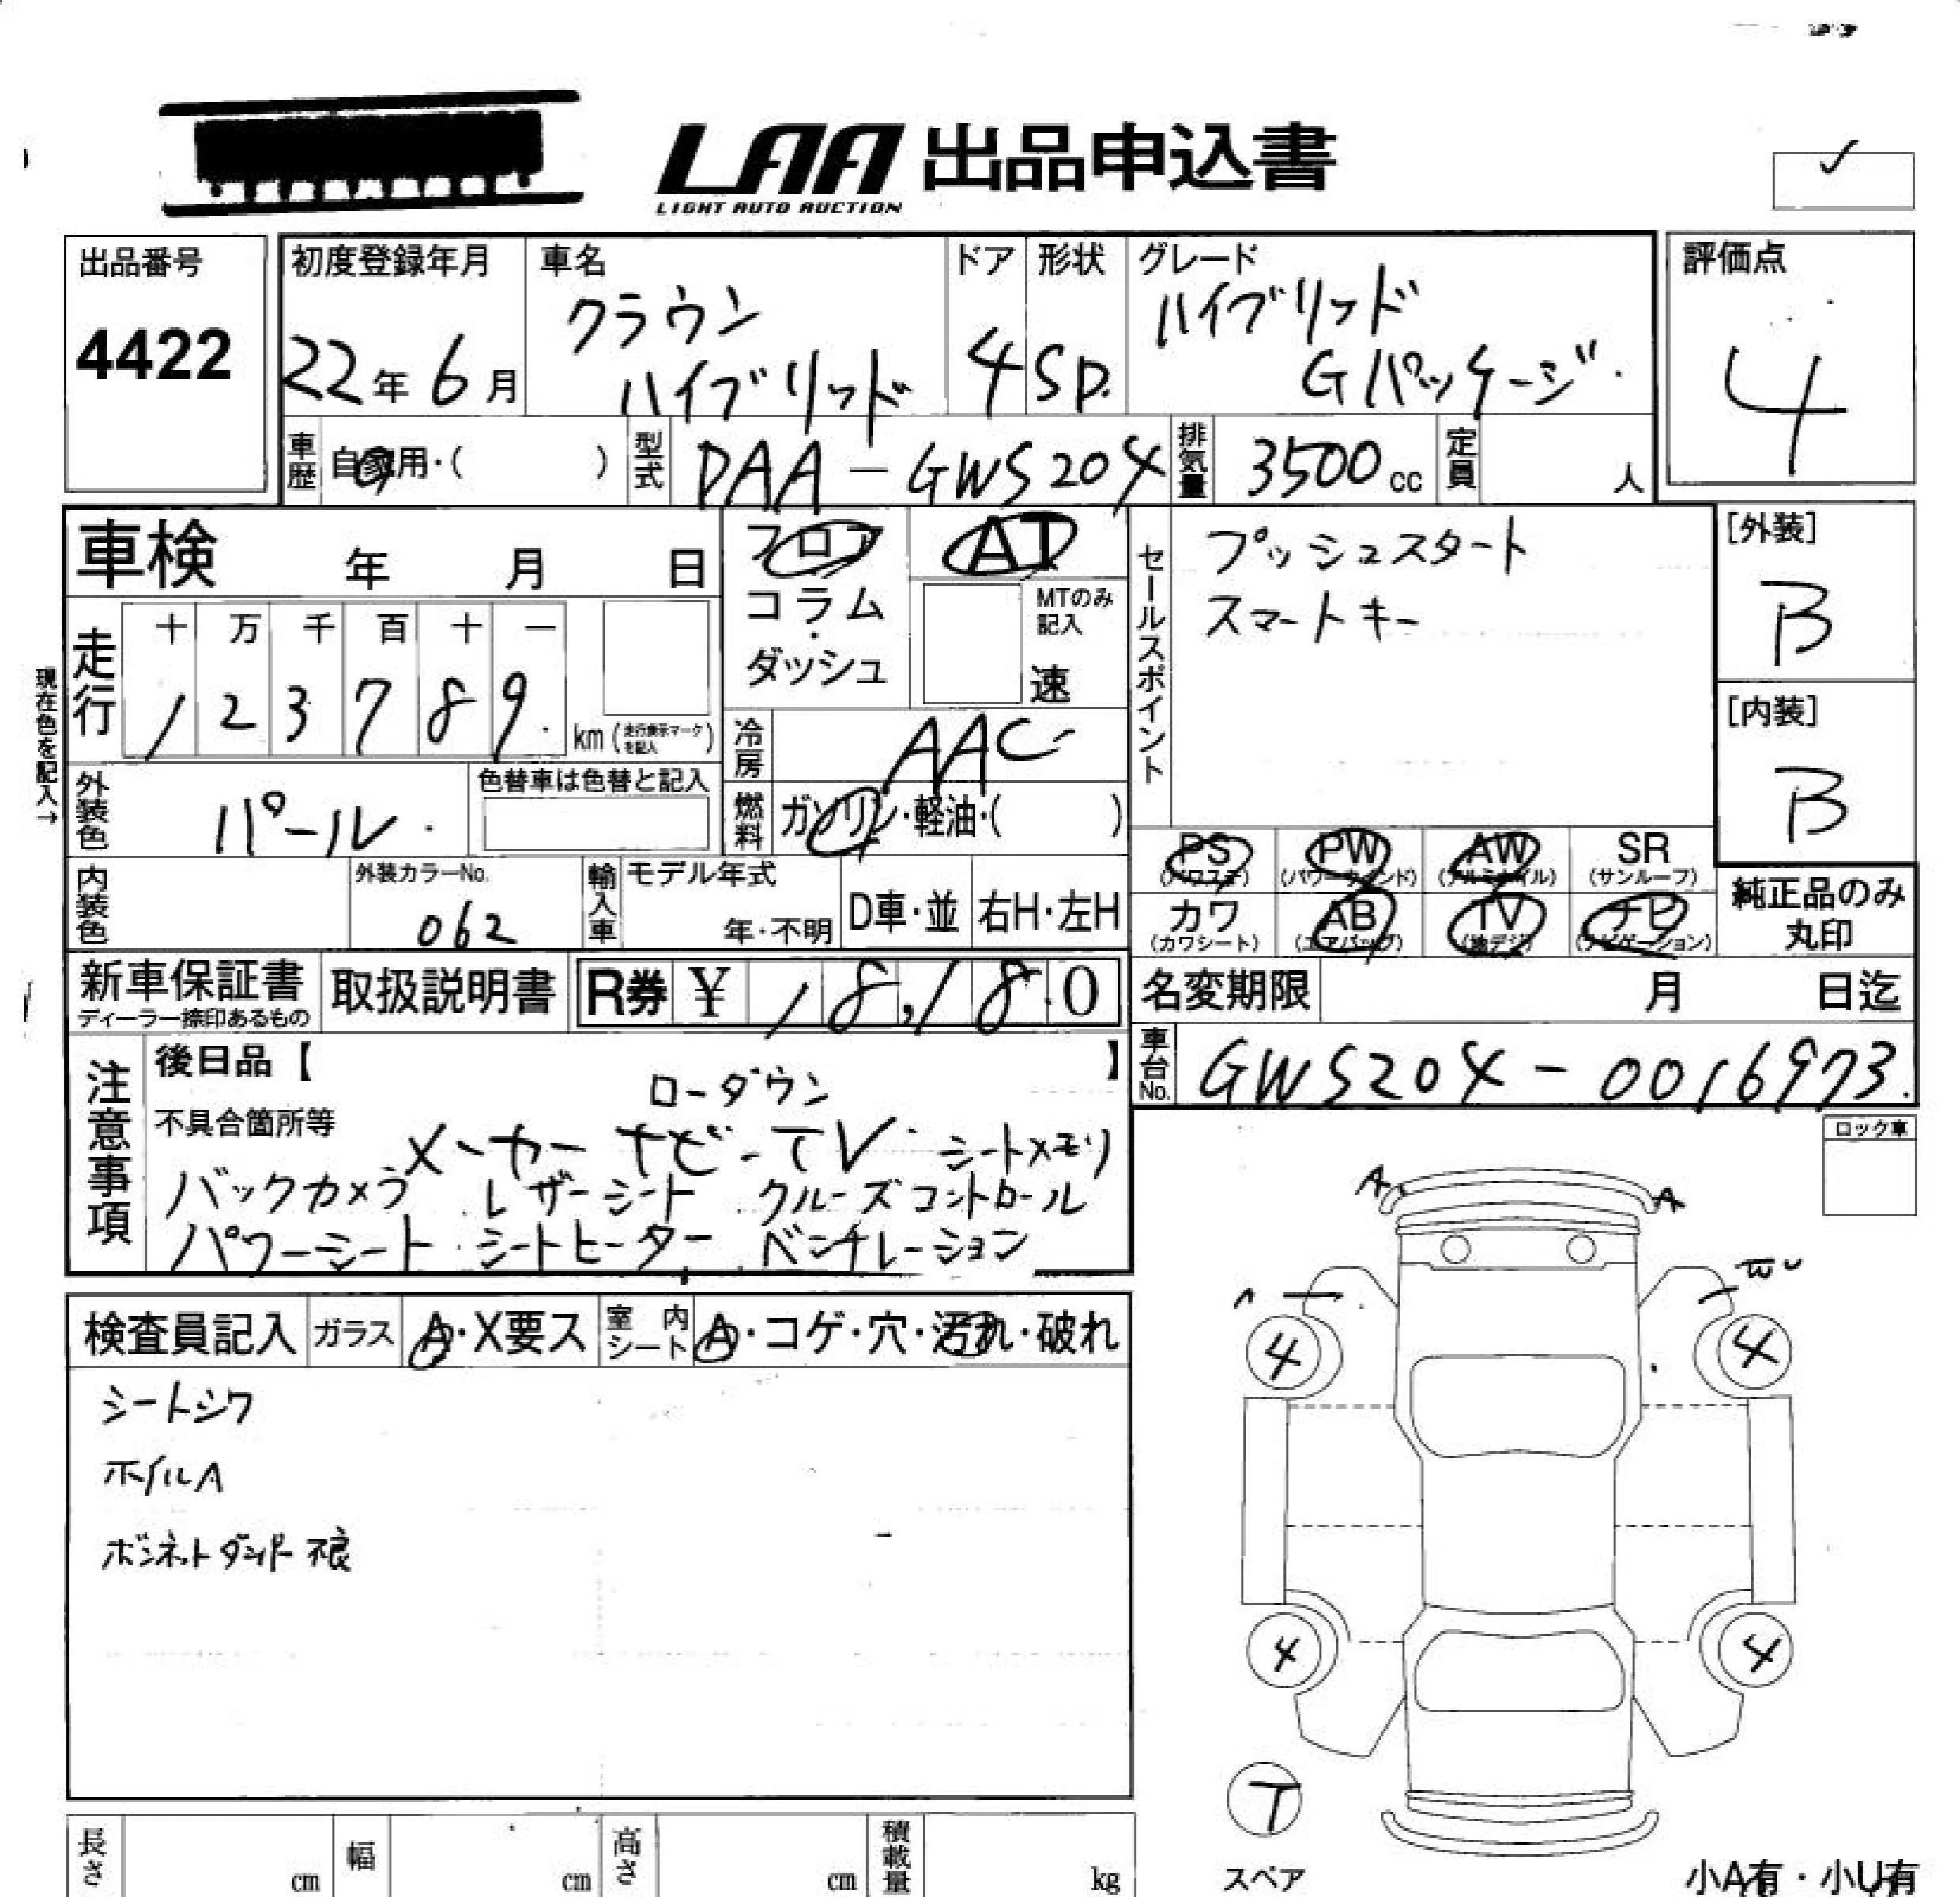 LAA 出品申込書
LIGHT AUTO AUCTION
出品番号
4422
初度登録年月
22年6月
車名
クラウン
ハイブリッド
ドア
4
形状
SD.
グレード
ハイブリッド
Gパッケージ
評価点
4
車歴 自家用・( )
型式 DAA-GWS204
排気量 3500cc
定員 人
車検 年 月 日
フロア
コラム
・
ダッシュ
AT
MTのみ
記入
速
セールスポイント
プッシュスタート
スマートキー
[外装]
B
[内装]
B
現在色を記入→
走行
十 万 千 百 十 一
1 2 3 7 8 9
km(走行表示マークを記入)
冷房 AAC
燃料 ガソリン・軽油・( )
外装色 パール
色替車は色替と記入
内装色
外装カラーNo.
062
輸入車
モデル年式
年・不明
D車・並
右H・左H
PS
(パワステ)
PW
(パワーウインド)
AW
(アルミホイル)
SR
(サンルーフ)
カワ
(カワシート)
AB
(エアバッグ)
TV
(地デジ)
ナビ
(ナビゲーション)
純正品のみ
丸印
新車保証書
ディーラー捺印あるもの
取扱説明書
R券 ¥ 18,180
名変期限 月 日迄
車台No. GWS204-0016973
注意事項
後日品【 】
ローダウン
不具合箇所等
メーカーナビ-TV シートメモリ
バックカメラ レザーシート クルーズコントロール
パワーシート シートヒーター ベンチレーション
ロック車
A A
検査員記入
ガラス A・X要ス
室内シート A・コゲ・穴・汚れ・破れ
シートシワ
ホイルA
ボンネットダンパー不良
4 4
4 4
T
スペア
小A有・小U有
長さ cm
幅 cm
高さ cm
積載量 kg